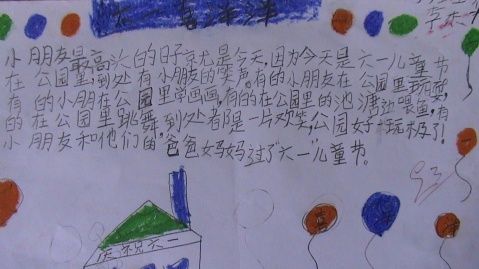 小朋友最高兴的日子京尤是今天,因为今天是六一儿童节
在公园里,到处有小朋友的笑声。有的小朋友在公园里玩耍,
有的小朋在公园里学画画,有的在公园里的池溏边喂鱼,有
的在公园里跳舞,到处都是一片欢笑,公园好玩极了!
小朋友和他们的爸爸妈妈过了"六一"儿童节。
庆祝六一
93